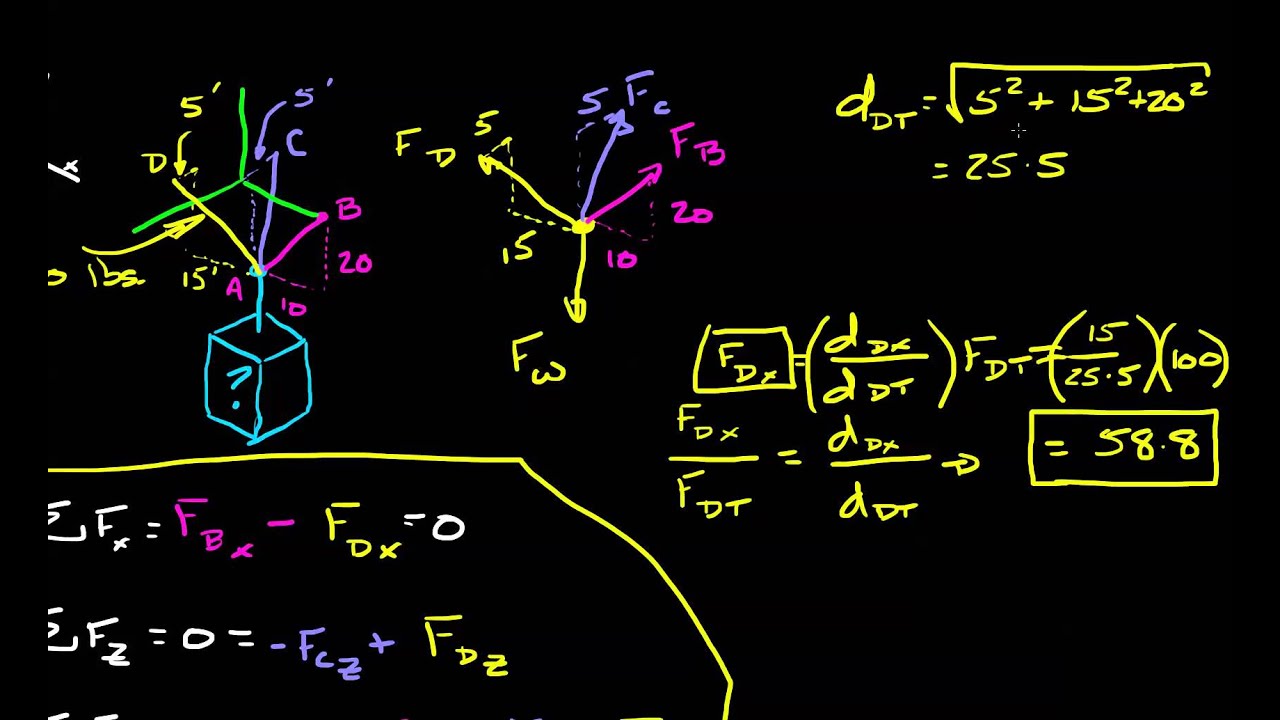 5'
5'
D
C
B
20
15'
A
10
lbs.
?
F_D
5
5
F_C
F_B
20
15
10
F_w
d_DT = √(5² + 15² + 20²)
= 25.5
F_Dx = (d_Dx / d_DT) F_DT = (15 / 25.5)(100)
F_Dx / F_DT = d_Dx / d_DT →
= 58.8
ΣF_x = F_Bx - F_Dx = 0
ΣF_z = 0 = -F_Cz + F_Dz